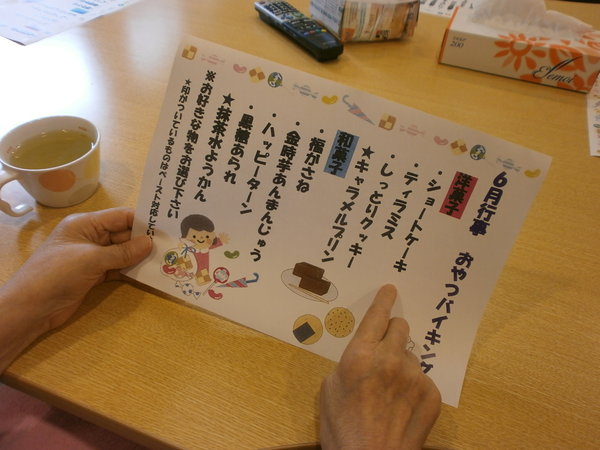 6月行事 おやつバイキング
洋菓子
・ショートケーキ
・ティラミス
・しっとりクッキー
★キャラメルプリン
和菓子
・福がさね
・金時芋あんまんじゅう
・ハッピーターン
・黒糖あられ
★抹茶水ようかん
※お好きな物をお選び下さい
★印がついているものはペースト対応してい
Elemoi
200